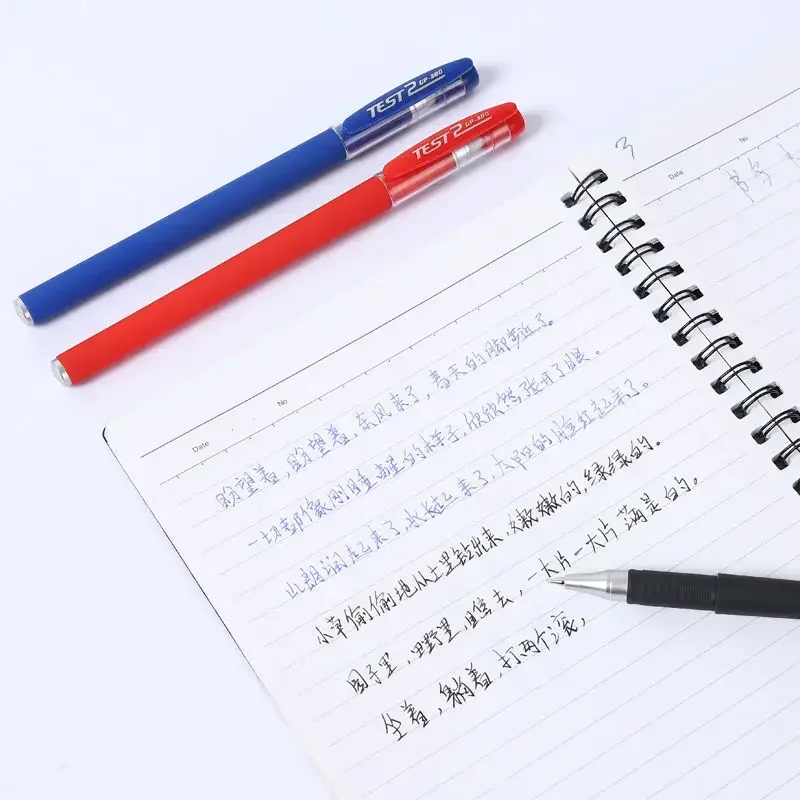 TEST 2 GP-380
TEST 2 GP-380
3
Date
No
书
No
Date
盼望着,盼望着,东风来了,春天的脚步近了。
一切都像刚睡醒的样子,欣欣然张开了眼。
山朗润起来了,水涨起来了,太阳的脸红起来了。
小草偷偷地从土里钻出来,嫩嫩的,绿绿的。
园子里,田野里,瞧去,一大片一大片满是的。
坐着,躺着,打两个滚,